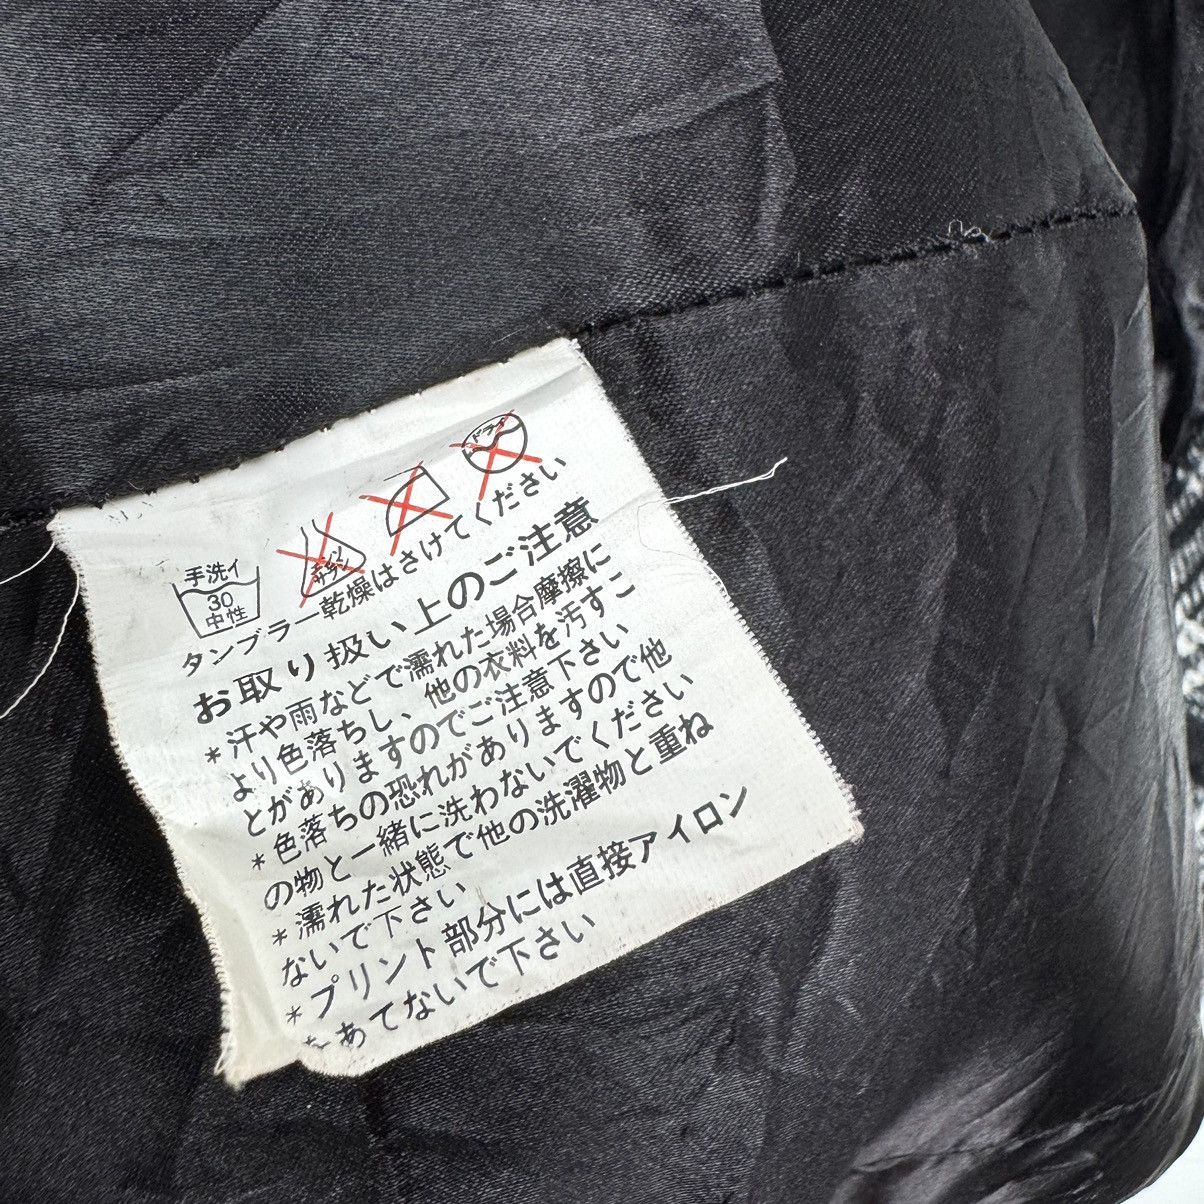 手洗イ
30
中性
エンソ
サラシ
ドライ
タンブラー乾燥はさけてください
お取り扱い上のご注意
*汗や雨などで濡れた場合摩擦に
より色落ちし、他の衣料を汚すこ
とがありますのでご注意下さい
*色落ちの恐れがありますので他
の物と一緒に洗わないでください
*濡れた状態で他の洗濯物と重ね
ないで下さい
*プリント部分には直接アイロン
をあてないで下さい